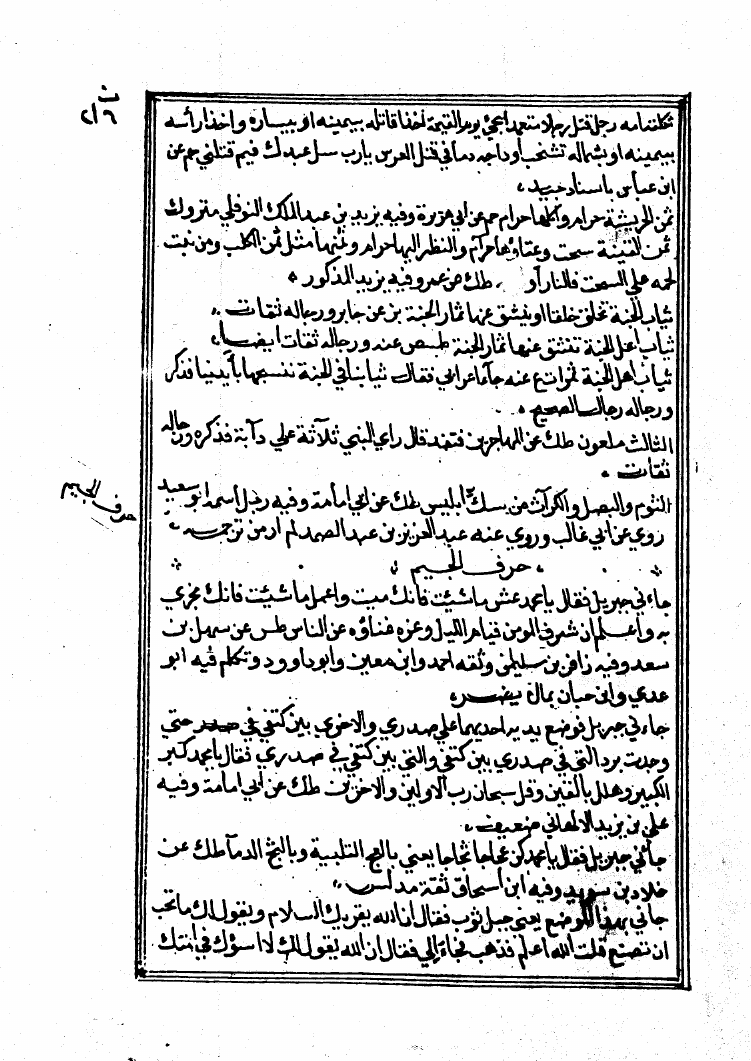 ثكلته امه رجل قتل رجلا متعمدا يجئ يوم القيمة اخذا قاتله بيمينه او بيساره واخذا رأسه
بيمينه او بشماله تشخب اوداجه دما في قبل العرش يارب سل عبدك فيم قتلني حم عن
ابن عباس باسناد جيد
ثمن الحريشة حرام واكلها حرام حم عن ابي هريرة وفيه يزيد بن عبد الملك النوفلي متروك
ثمن القينة سحت وغناؤها حرام والنظر اليها حرام وثمنها مثل ثمن الكلب ومن نبت
لحمه علي السحت فالنار او طك عن عمر وفيه يزيد المذكور
ثياب الجنة تخلق خلقا او ينشق عنها ثمار الجنة بز عن جابر ورجاله ثقات
ثياب اهل الجنة تنشق عنها ثمار الجنة طـص عنه ورجاله ثقات ايضا
ثياب اهل الجنة ع عنه جاء اعرابي فقال ثيابنا في الجنة ننسجها بأيدينا فذكر
ورجاله رجال الصحيح
الثالث ملعون طك عن المهاجر بن قنفذ قال راي النبي ثلاثة علي دآبة فذكره ورجاله
ثقات
الثوم والبصل والكراث من سك ابليس طك عن ابي امامة وفيه رجل اسمه ابو سعيد
روي عن ابي غالب وروي عنه عبد العزيز بن عبد الصمد لم ار من ترجمه
حرف الجيم
حرف الجيم
جاءني جبريل فقال يا محمد عش ما شئت فانك ميت واعمل ما شئت فانك مجزي
به واعلم ان شرف المومن قيامه الليل وعزه غناؤه عن الناس طس عن سهل بن
سعد وفيه زافر بن سليمن وثقه احمد وابن معين وابو داوود وتكلم فيه ابو
عدي وابن حبان بمالا يضر
جاءني جبريل فوضع يديه احديهما علي صدري والاخري بين كتفي في صدر حتي
وجدت برد التي في صدري بين كتفي والتي بين كتفي في صدري فقال يا محمد كبر
الكبير وهلل باليقين وقل سبحان رب الاولين والاخرين طك عن ابي امامة وفيه
علي بن يزيد الالهاني ضعيف
جآئني جبريل فقال يا محمد كن عجاجا ثجاجا يعني بالعج التلبية وبالثج الدمآ طك عن
خلاد بن سويد وفيه ابن اسحاق ثقة مدلس
جآني بهذا الموضع يعني جبل ثوب فقال ان الله يقريك السلام ويقول لك ما تحب
ان نصنع قلت الله اعلم فذهب فجاء الي فقال ان الله يقول لك لا اسؤك في امتك